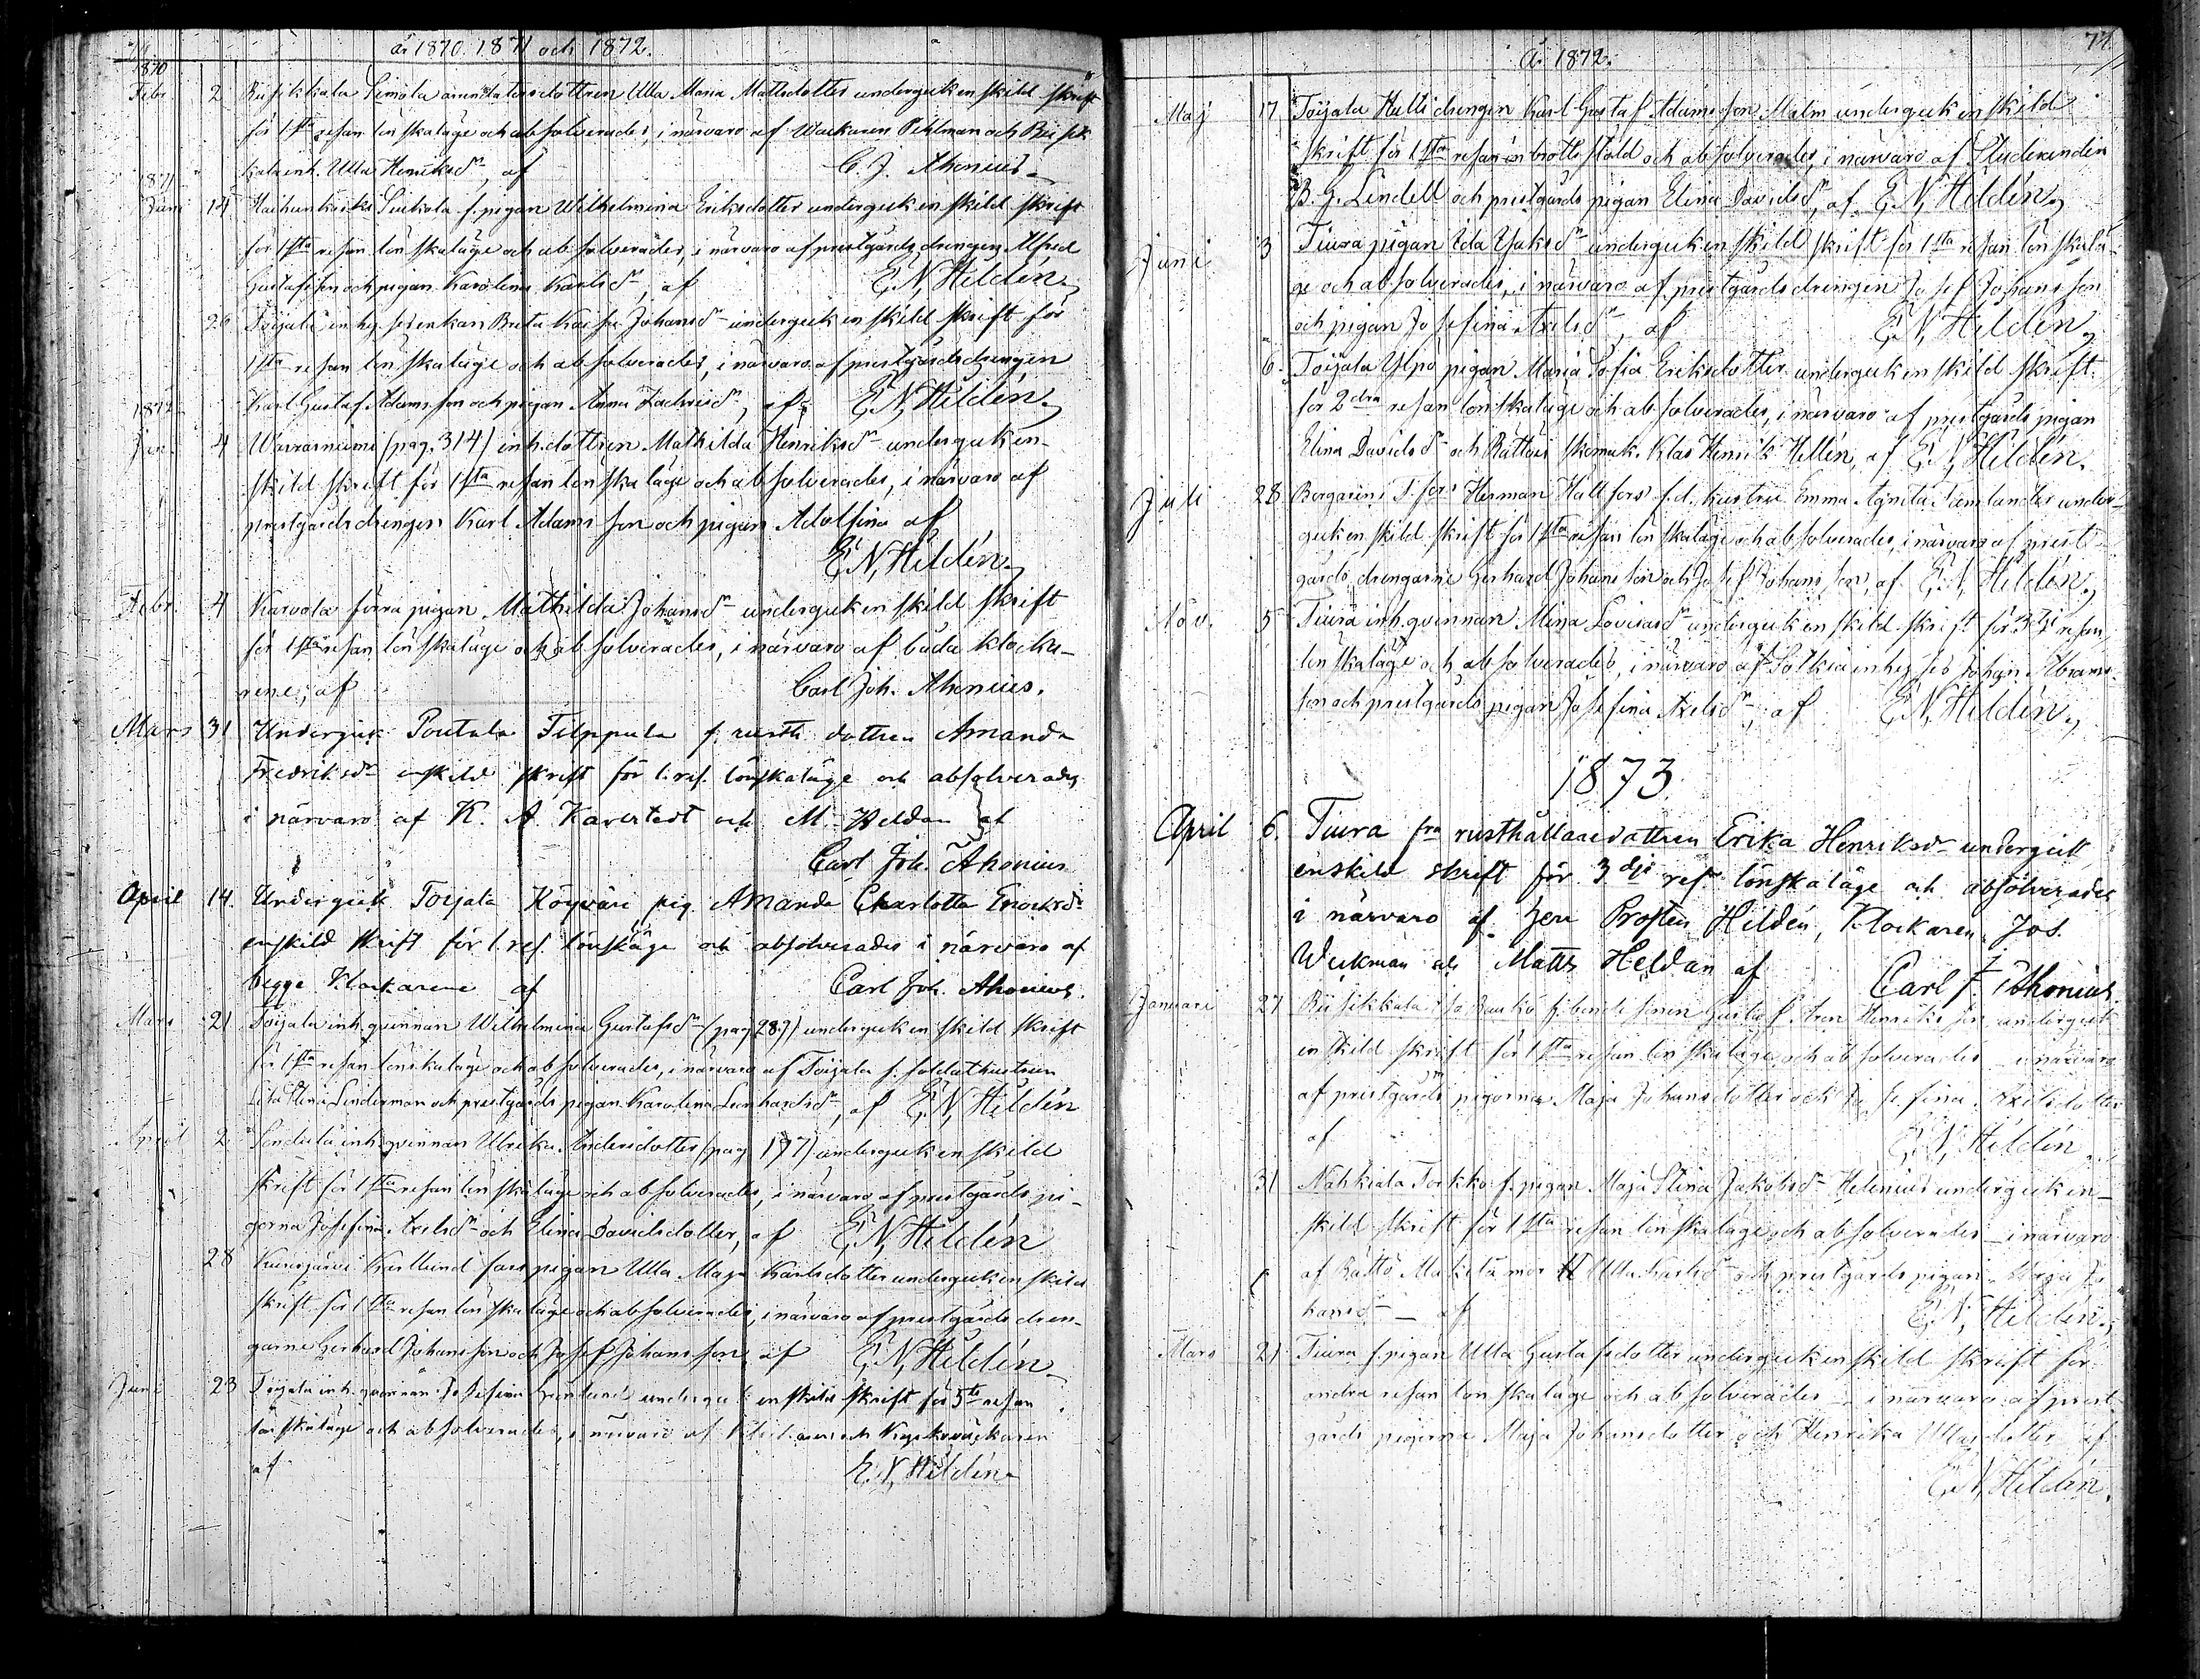 år 1870. 1871 och 1872.
1870
Febr. 2 Riisikkala Simola arrendatorsdottren Ulla Maria Mattsdotter undergick enskild skrift
för 1sta resan lönskaläge och absolverades, i närvaro af Wäckaren Pihlman och Riisik-
kala inh. Ulla Henriksdr, af C. J. Ahonius.
1871
Juni 14 Haihunkoski Seikola f. pigan Wilhelmina Eriksdotter undergick enskild skrift
för 1sta resan lönskaläge och absolverades, i närvaro af prestgårdsdrengen Alfred
Gustafsson och pigan Karolina Karlsdr, af E. N. Hildén.
26 Toijala inhysesenkan Brita Kaisa Johansdr undergick enskild skrift för
1sta resan lönskaläge och absolverades, i närvaro af prestgårdsdrengen
Karl Gustaf Adamsson och pigan Anna Zachrisdr, af E. N. Hildén.
1872
Jan. 4 Warrasniemi (pag. 314) inh.dottren Mathilda Henriksdr undergick en-
skild skrift för 1sta resan lönskaläge och absolverades, i närvaro af
prestgårdsdrengen Karl Adamsson och pigan Adolfina af
E. N. Hildén.
Febr. 4 Karvola förra pigan Mathilda Johansdr undergick enskild skrift
för 1sta resan lönskaläge och absolverades, i närvaro af båda klocka-
rene, af Carl Joh. Ahonius.
Mars 31 Undergick Poutala Filppula f. rusth. dottren Amanda
Fredriksdr enskild skrift för 1. res. lönskaläge och absolverades
i närvaro af K. A. och M. Heldan af
Carl Joh. Ahonius
April 14. Undergick Toijala pig. Amanda Charlotta Enoksdr
enskild skrift för 1. res. lönskäge och absolverades i närvaro af
begge Klockarene af Carl Joh. Ahonius.
Mars 21 Toijala inh.qvinnan Wilhelmina Gustafsdr (pag 289) undergick enskild skrift
för 1sta resan lönskaläge och absolverades, i närvaro af Toijala f. soldathustrun
Stina Linderman och prestgårds pigan Karolina Leonhardsdr, af E. N. Hildén
April 2 Sondula inh.qvinnan Ulrika Andersdotter (pag 177) undergick enskild
skrift för 1sta resan lönskaläge och absolverades, i närvaro af prestgårds pi-
gorna Josefina Axelsdr och Elina Davidsdotter, af E. N. Hildén
28 Kurisjärvi Karllund fars pigan Ulla Maja Karlsdotter undergick enskild
skrift för 1sta resan lönskaläge och absolverades, i närvaro af prestgårdsdren-
garne Gerhard Johansson och Josef Johansson, af E. N. Hildén
Juni 23 Toijala inh. qvinnan Josefina Grönlund undergick enskild skrift för 5te resan
lönskaläge och absolverades, i närvaro af och Kyrkoväckaren
af E. N. Hildén
77
År 1872.
Maj 17 Toijala Halli drengen Karl Gustaf Adamsson Malm undergick enskild
skrift för 1sta resan inbrotts stöld och absolverades, i närvaro af Studeranden
B. G. Lindell och prestgårds pigan Elina Davidsdr, af E. N. Hildén.
Juni 3 Tiura pigan Ida Isaksdr undergick enskild skrift för 1sta resan lönskalä-
ge och absolverades, i närvaro af prestgårdsdrengen Josef Johansson
och pigan Josefina Axelsdr, af E. N. Hildén
6. Toijala Yspo pigan Maria Sofia Eriksdotter undergick enskild skrift
för 2dra resan lönskaläge och absolverades, i närvaro af prestgårds pigan
Elina Davidsdr och Rättöis skomak. Klas Henrik Hellén, af E. N. Hildén.
Juli 28 Herman Hallfors f.d. hustru Emma Agneta Tamlander under-
gick enskild skrift för 1sta resan lönskaläge och absolverades, i närvaro af prest-
gårds drengarne Gerhard Johansson och Josef Johansson, af E. N. Hildén
Nov. 5 Tiura inh.qvinnan Mina Lovisasdr undergick enskild skrift för 3dje resan
lönskaläge och absolverades, i närvaro af Sotkia inhyses Johan Abrams-
son och prestgårds pigan Josefina Axelsdr, af E. N. Hildén.
1873
April 6. Tiura fra rusthållaredottren Erika Henriksdr undergick
enskild skrift för 3dje res. lönskaläge och absolverades
i närvaro af herr Prosten Hildén, Klockaren Jos.
Weckman och Matts Heldan af Carl J. Ahonius.
Januari 27 Riisikkala Iso Rauko f. bonde sonen Gustaf Aron Henriksson undergick
enskild skrift för 1sta resan lönskaläge och absolverades i närvaro
af prestgårds pigorna Maja Johansdotter och Josefina Axelsdotter
af E. N. Hildén
31 Nahkiala Torkko f. pigan Maja Stina Jakobsdr Helenius undergick en-
skild skrift för 1sta resan lönskaläge och absolverades i närvaro
af Rättö Mäkelä mor Ulla Karlsdr och prestgårds pigan Maja Jo-
hansdr af E. N. Hildén.
Mars 21 Tiura f. pigan Ulla Gustafsdotter undergick enskild skrift för
andra resan lönskaläge och absolverades i närvaro af prest-
gårds pigorna Maja Johansdotter och Henrika Ullasdotter af
E. N. Hildén.